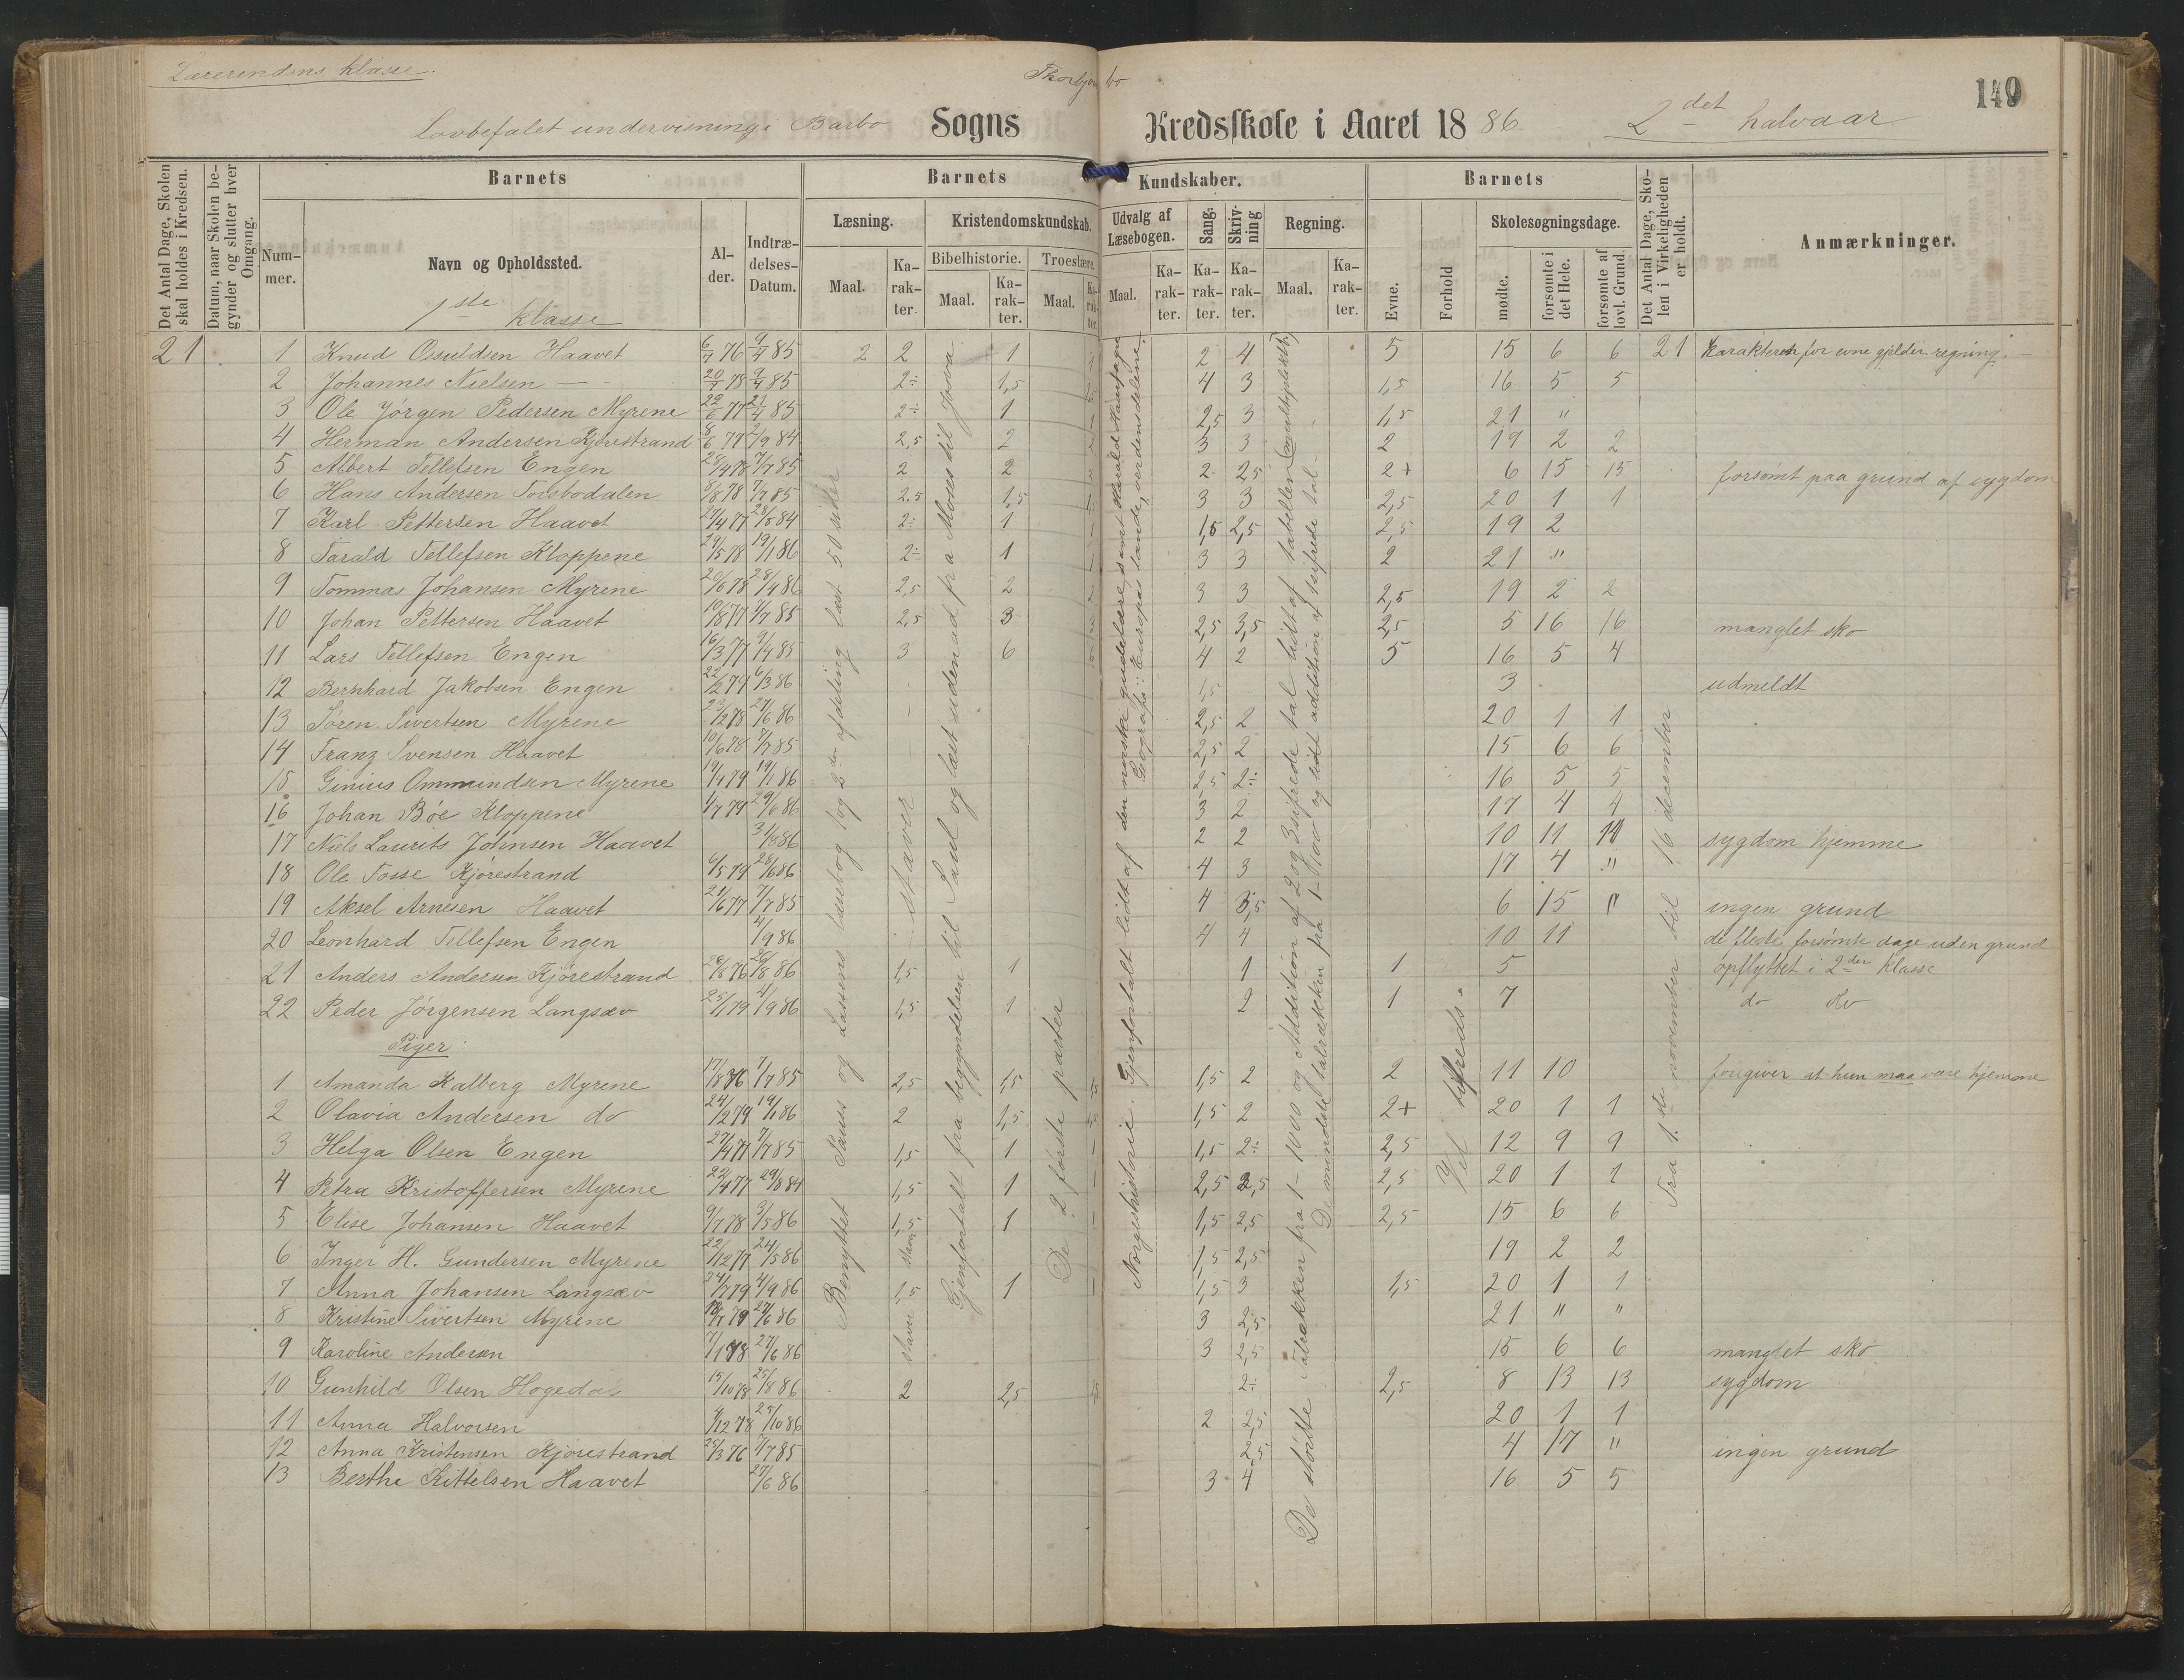 Lærerindens klasse.
149
Lovbefalet undervisning i Barbo Sogns Kredsskole i Aaret 1886 2det halvaar
Det Antal Dage, Skolen skal holdes i Kredsen.
Datum, naar Skolen begynder og slutter hver Omgang.
Barnets
Nummer.
Navn og Opholdssted.
Alder.
Indtrædelses-Datum.
Barnets Kundskaber.
Læsning.
Maal.
Karakter.
Kristendomskundskab.
Bibelhistorie.
Maal.
Karakter.
Troeslære.
Maal.
Karakter.
Udvalg af Læsebogen.
Maal.
Karakter.
Sang.
Karakter.
Skrivning
Karakter.
Regning.
Maal.
Karakter.
Barnets
Evne.
Forhold
Skolesøgningsdage.
mødte.
forsømte i det Hele.
forsømte af lovl. Grund.
Det Antal Dage, Skolen i Virkeligheden er holdt.
Anmærkninger.
1ste klasse
21 1 Knud Osuldsen Haavet 6/7 76 9/4 85 2 2 1 2 4 5 15 6 6 21 Karakteren for evne gjelder regning.
2 Johannes Nielsen — 20/7 78 9/4 85 2÷ 1,5 4 3 1,5 16 5 5
3 Ole Jørgen Pedersen Myrene 22/6 77 21/4 85 2÷ 1 2,5 3 1,5 21 "
4 Herman Andersen Kjørestrand 8/6 77 2/9 84 2,5 2 3 3 2 19 2 2
5 Albert Tellefsen Engen 28/4 78 7/7 85 2 2 2 2,5 2+ 6 15 15 forsømt paa grund af sygdom
6 Hans Andersen Torsbodalen 8/8 78 7/7 85 2,5 1,5 3 3 2,5 20 1 1
7 Karl Pettersen Haavet 27/4 77 28/8 84 2÷ 1 1,5 2,5 2,5 19 2
8 Tarald Tellefsen Kloppene 29/5 78 19/1 86 2÷ 1 3 3 2 21 "
9 Tommas Johansen Myrene 20/6 78 28/4 86 2,5 2 3 3 2,5 19 2 2
10 Johan Pettersen Haavet 10/8 77 7/7 85 2,5 3 2,5 3,5 2,5 5 16 16 manglet sko
11 Lars Tellefsen Engen 16/3 77 9/4 85 3 6 4 2 5 16 5 4
12 Bernhard Jakobsen Engen 22/2 79 6/3 86 1,5 3 udmeldt
13 Søren Sivertsen Myrene 23/2 78 27/6 86 2,5 2 20 1 1
14 Franz Svensen Haavet 10/6 78 7/7 85 2,5 2 15 6 6
15 Ginius Ommundsen Myrene 19/1 79 19/1 86 2,5 2÷ 16 5 5
16 Johan Bøe Kloppene 1/7 79 29/6 86 3 2 17 4 4
17 Niels Laurits Johnsen Haavet 31/8 86 2 2 10 11 11 sygdom hjemme
18 Ole Fosse Kjørestrand 6/5 79 28/6 86 4 3 17 4 "
19 Aksel Arnesen Haavet 21/6 77 7/7 85 4 3,5 6 15 " ingen grund
20 Leonhard Tellefsen Engen 4/9 86 4 4 10 11 de fleste forsømte dage uden grund
21 Anders Andersen Kjørestrand 26/8 76 26/8 86 1,5 1 1 1 5 opflyttet i 2den klasse
22 Peder Jørgensen Langsæv 25/1 79 4/9 86 1,5 1 2 1 7 do do
Piger:
1 Amanda Kalberg Myrene 17/8 76 7/7 85 2,5 1,5 1,5 2 2 11 10 foregiver at hun maa være hjemme
2 Olavia Andersen do 24/2 79 19/1 86 2 1,5 1,5 2 2+ 20 1 1
3 Helga Olsen Engen 27/4 77 7/7 85 1,5 1 1,5 2÷ 2,5 12 9 9
4 Petra Kristoffersen Myrene 22/4 77 29/8 84 1,5 1 2,5 2,5 2,5 20 1 1
5 Elise Johansen Haavet 9/7 78 3/5 86 1,5 1 1,5 2,5 2,5 15 6 6
6 Inger H. Gundersen Myrene 22/12 77 24/5 86 staver 1,5 2,5 19 2 2
7 Anna Johansen Langsæv 24/7 79 4/9 86 1,5 1 1,5 3 1,5 20 1 1
8 Kristine Sivertsen Myrene 79 27/6 86 staver 3 2,5 21 " "
9 Karoline Andersen 7/1 78 27/6 86 3 2,5 15 6 6 manglet sko
10 Gunhild Olsen 15/10 78 25/8 86 2 2,5 2÷ 2,5 8 13 13 sygdom
11 Anna Halvorsen 12 78 25/10 86 2 2,5 20 1 1
12 Anna Kristensen Kjørestrand 25/3 76 7/7 85 2,5 4 17 " ingen grund
13 Berthe Kittelsen Haavet 27/6 86 3 4 16 5 5
Benyttet Pauss og Lassens læsebog 1 og 2den afdeling læst 50 sider
staver
Gjenfortalt fra begyndelsen til Saul og læst udenad fra Moses til Josva
De 2 første parter
Norgeshistorie. Gjenfortalt lidt af den norske gudelære, samt Harald Haarfagre
Geografi: Europas lande, verdensdelene.
De største talrækken fra 1-1000 og Addition af 2 og 3sifrede tal lidt af tabellen (multiplikation)
De mindste talrækken fra 1-100 og lidt addition af 1sifrede tal
Vel tilfreds.
Fra 1.ste november til 16 december